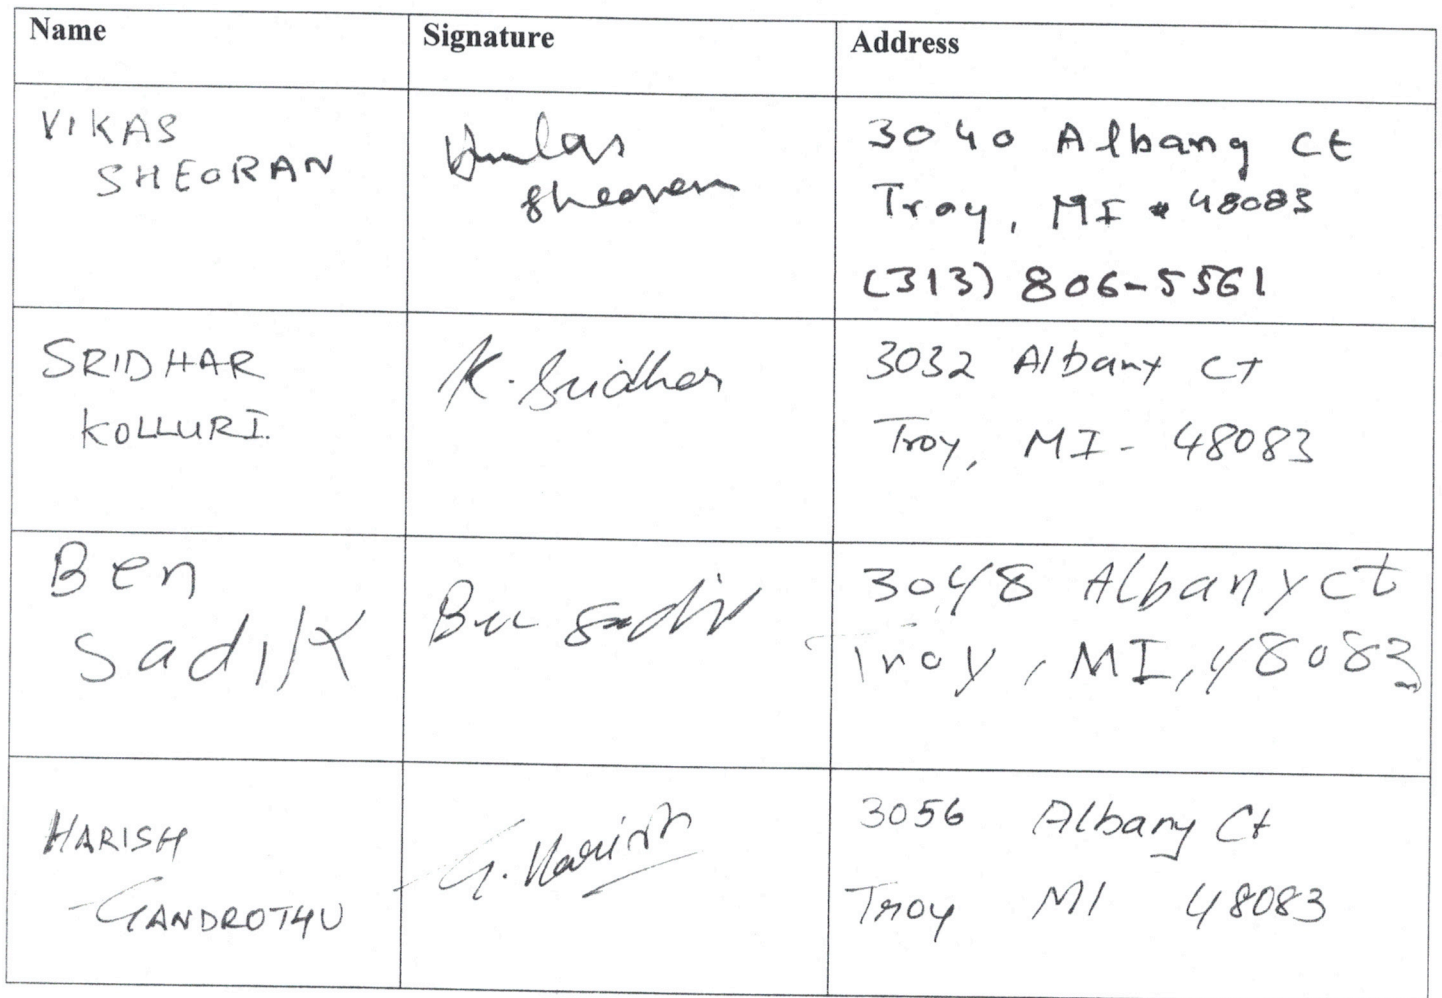 Name
Signature
Address
VIKAS
SHEORAN
Vikas
Sheoran
3040 Albany Ct
Troy, MI 48083
(313) 806-5561
SRIDHAR
KOLLURI.
K. Sridhar
3032 Albany Ct
Troy, MI - 48083
Ben
Sadik
Ben Sadik
3048 Albany ct
Troy, MI, 48083
HARISH
GANDROTHU
G. Harish
3056 Albany Ct
Troy MI 48083